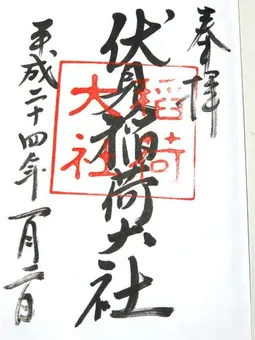 奉拝
伏見稲荷大社
稲荷
大社
平成二十四年一月二日